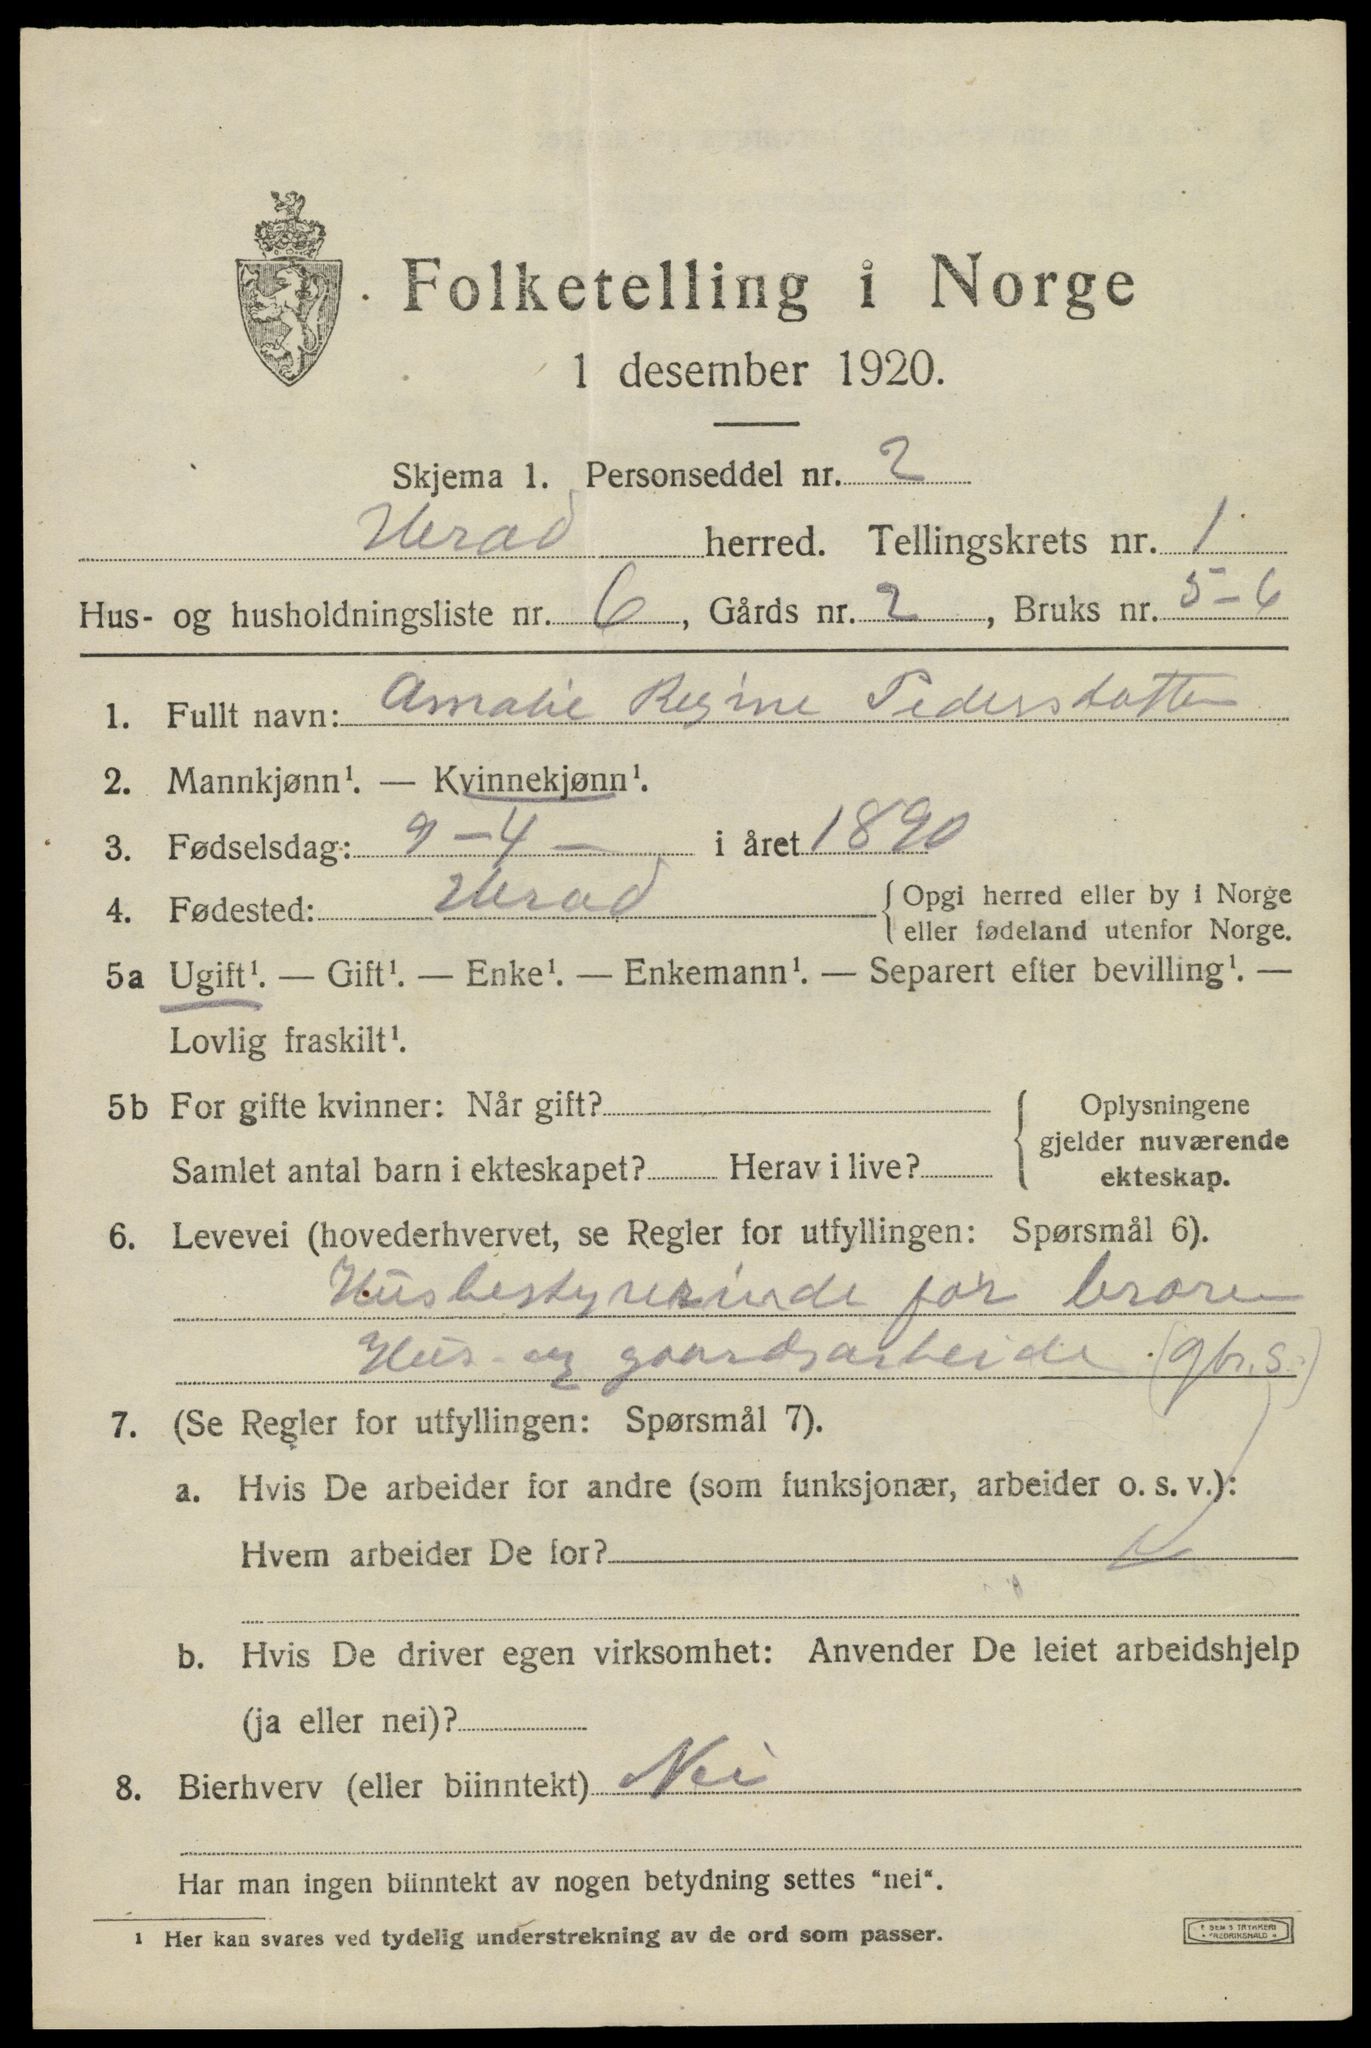 Folketelling i Norge
1 desember 1920.
Skjema 1. Personseddel nr. 2
Herad herred. Tellingskrets nr. 1
Hus- og husholdningsliste nr. 6, Gårds nr. 2, Bruks nr. 5-6
1. Fullt navn: Amalie Regine Pedersdatter
2. Mannkjønn¹. — Kvinnekjønn¹.
3. Fødselsdag: 9-4- i året 1890
4. Fødested: Herad { Opgi herred eller by i Norge
eller fødeland utenfor Norge.
5a Ugift¹. — Gift¹. — Enke¹. — Enkemann¹. — Separert efter bevilling¹. —
Lovlig fraskilt¹.
5b For gifte kvinner: Når gift?
Samlet antal barn i ekteskapet? Herav i live?
{ Oplysningene
gjelder nuværende
ekteskap.
6. Levevei (hovederhvervet, se Regler for utfyllingen: Spørsmål 6).
Husbestyrerinde for broren
Hus- og gaardsarbeide (gbr.s.)
7. (Se Regler for utfyllingen: Spørsmål 7).
a. Hvis De arbeider for andre (som funksjonær, arbeider o. s. v.):
Hvem arbeider De for?
b. Hvis De driver egen virksomhet: Anvender De leiet arbeidshjelp
(ja eller nei)?
8. Bierhverv (eller biinntekt) Nei
Har man ingen biinntekt av nogen betydning settes "nei".
1 Her kan svares ved tydelig understrekning av de ord som passer.
TRYKKERI
FREDRIKSHALD